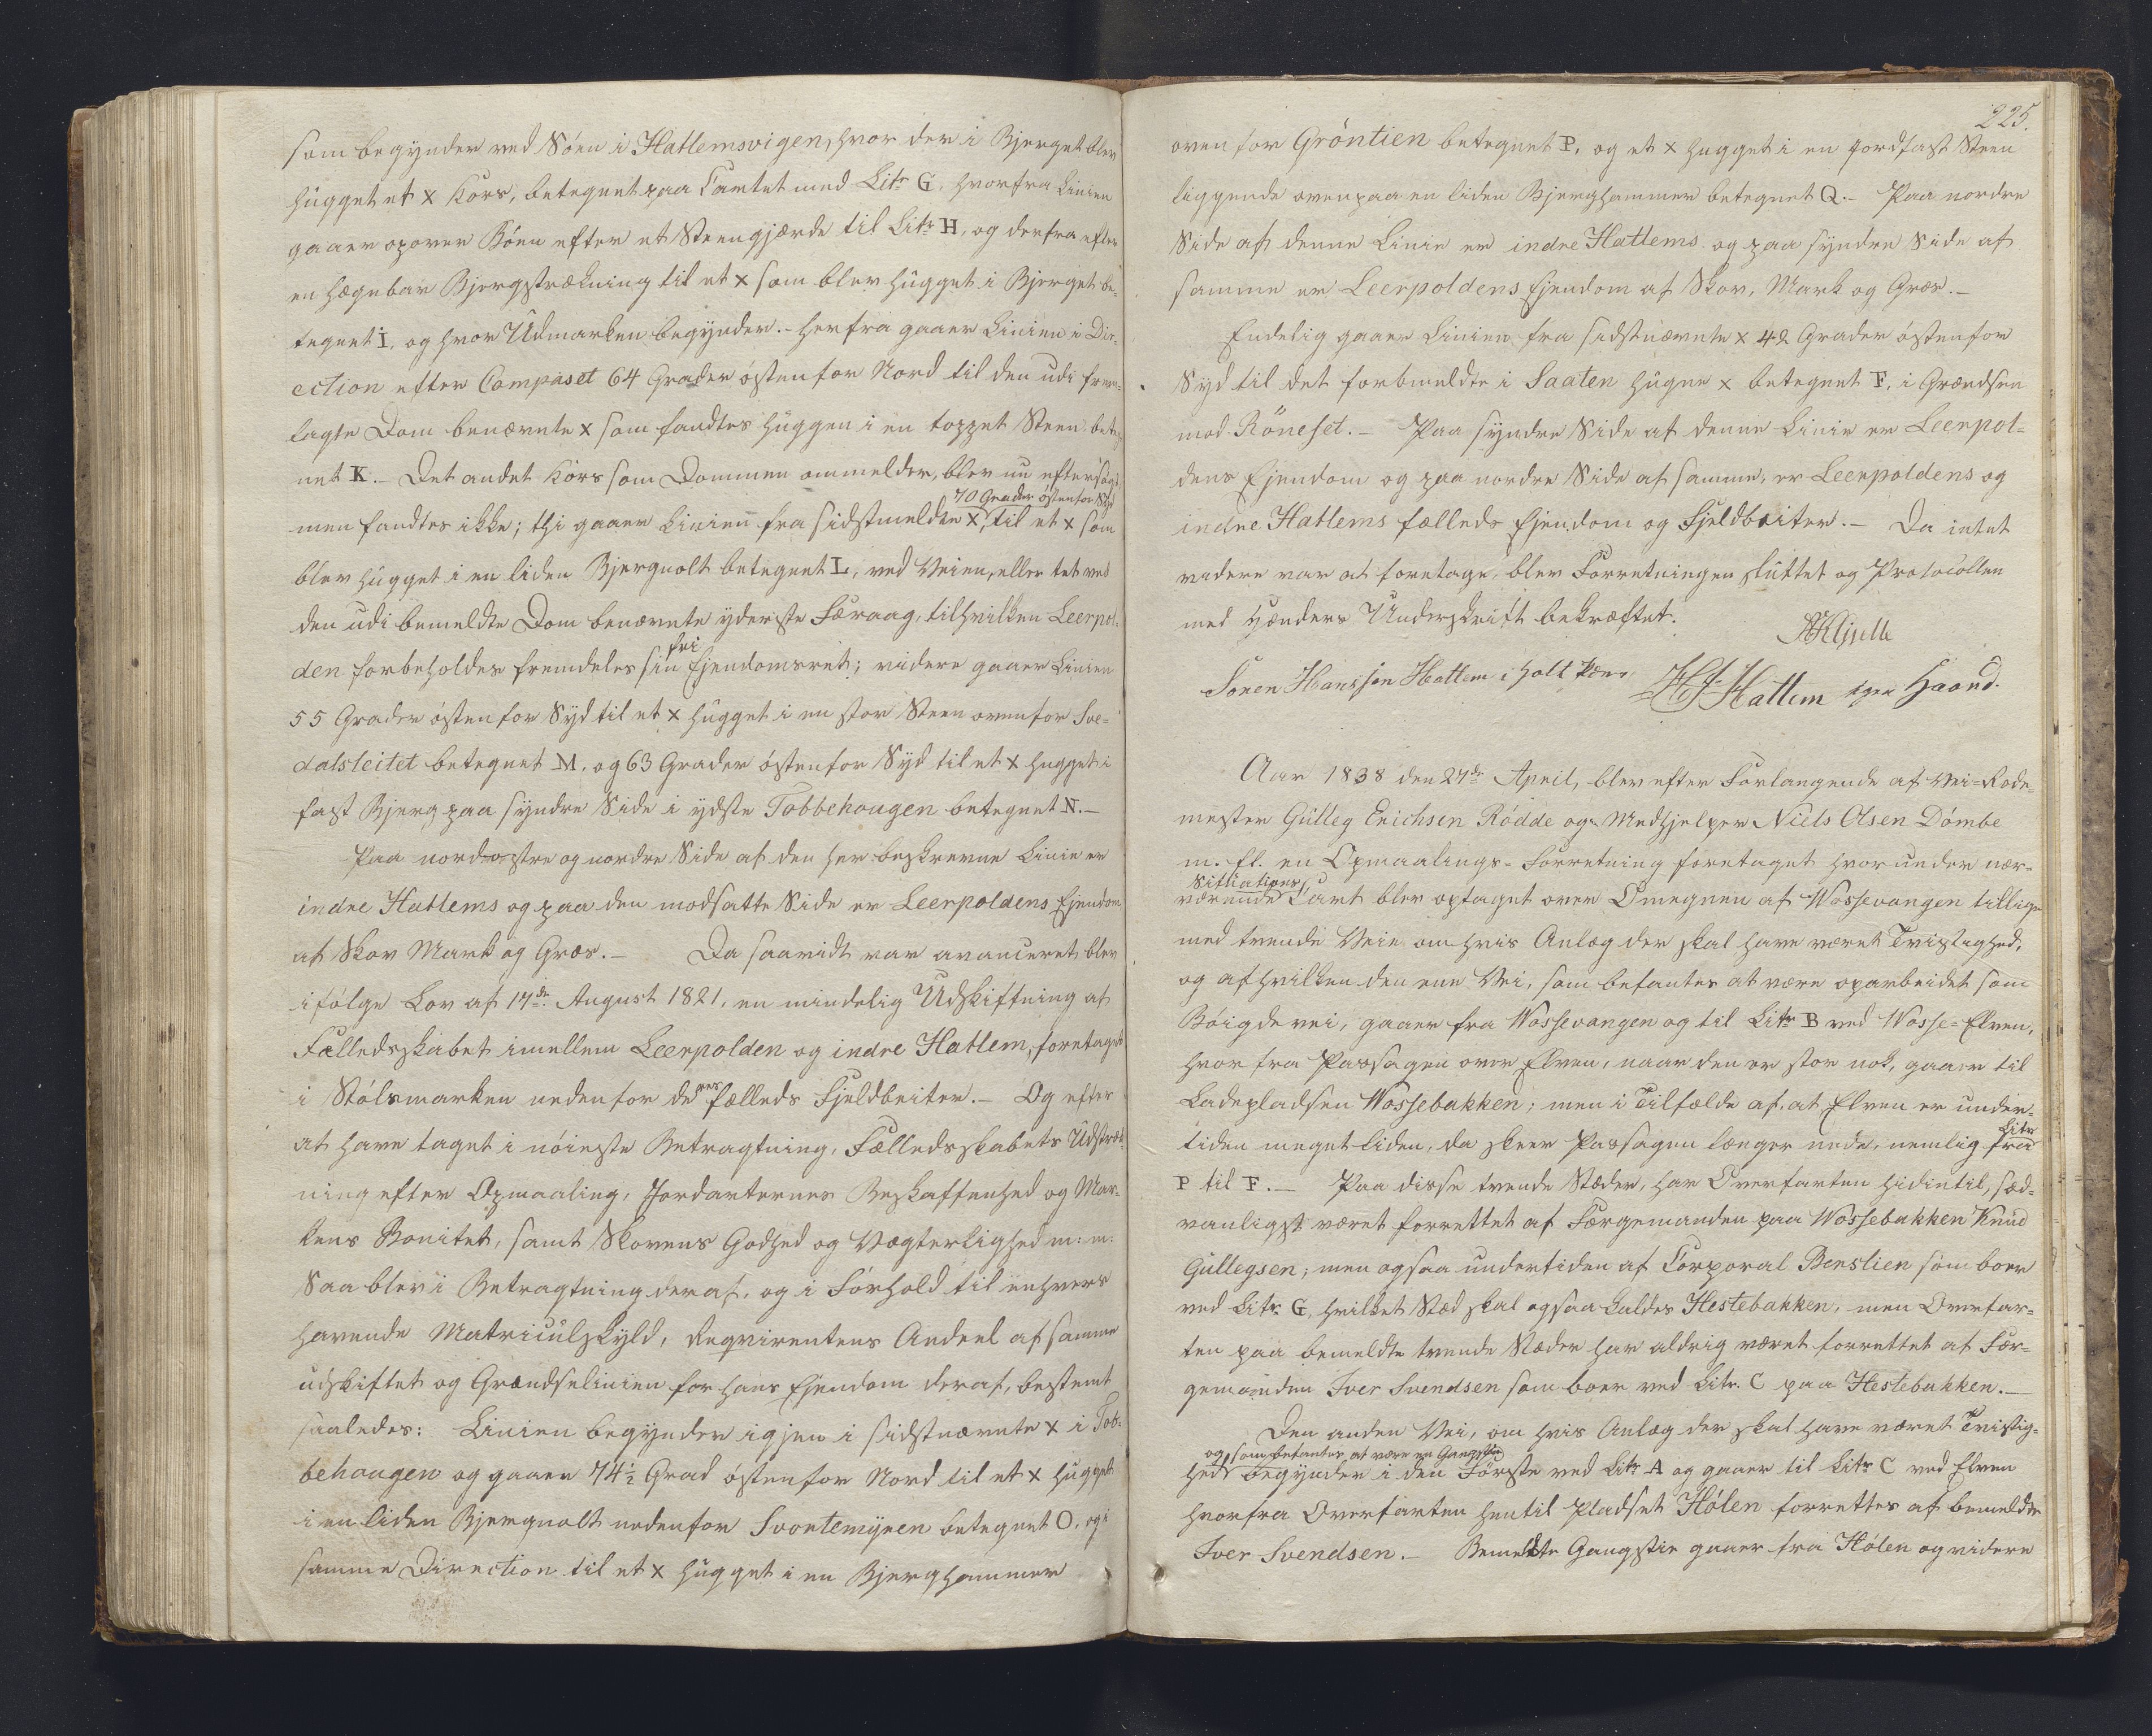 som begynder ved Söen i Hatlemsvigen, hvor der i Bjerget blev
hugget et x Kors, betegnet paa Cartet med Litr G. hvorfra Linien
gaaer opover Böen efter et Steengjærde til Litr H, og derfra efter
en hægnbar Bjergstrækning til et x som blev hugget i Bjerget be-
tegnet I, og hvor Udmarken begynder.- Herfra gaaer Linien i Dir-
ection efter Compaset 64 Grader östenfor Nord til den udi frem-
lagte Dom benævnte x som fandtes huggen i en toppet Steen beteg-
net K.- Det andet Kors som Dommen ommelder, blev nu eftersögt
70 Grader östenfor Syd
men fandtes ikke; thi gaaer Linien fra sidstmeldte x, til et x som
blev hugget i en liden Bjergnolt betegnet L, ved Veien, eller tet ved
den udi bemeldte Dom benævnte yderste Færaag, til hvilken Leerpol-
fri
den forbeholdes fremdeles sin Ejendomsret; videre gaaer Linien
55 Grader östenfor Syd til et x hugget i en stor Steen ovenfor Sve-
dalsleitet betegnet M. og 63 Grader östenfor Syd til et x hugget i
fast Bjerg paa syndre Side i ydste Tobbehougen betegnet N.-
Paa nordostre og nordre Side af den her beskrevne Linie er
indre Hatlems og paa den modsatte Side er Leerpoldens Ejendom
af Skov Mark og Græs.- Da saavidt var avanceret, blev
ifölge Lov af 17de August 1821, en mindelig Udskiftning af
Fælledsskabet imellem Leerpolden og indre Hatlem, foretaget
i Stölsmarken nedenfor deres fælleds Fjeldbeiter.- Og efter
at have taget i nöieste Betragtning, Fælledsskabets Udstræk-
ning efter Opmaaling, Jordarternes Beskaffenhed og Mar-
kens Bonitet, samt Skovens Godhed og Vægterlighed m: m:
Saa blev i Betragtning deraf, og i Forhold til enhvers
havende Matriculskyld, Reqvirentens Andeel af samme
udskiftet og Grændselinien for hans Ejendom deraf, bestemt
saaledes: Linien begynder igjen i sidstnævnte x i Tob-
behougen og gaaer 74½ Grad östenfor Nord til et x hugget
i en liden Bjergnolt nedenfor Svortemyren betegnet O, og i
samme Direction til et x hugget i en Bjerghammer
225.
ovenfor Gröntien betegnet P, og et x hugget i en jordfast Steen
liggende ovenpaa en liden Bjerghammer betegnet Q.- Paa nordre
Side af denne Linie er indre Hatlems og paa syndre Side af
samme er Leerpoldens Ejendom af Skov, Mark og Græs.-
Endelig gaaer Linien fra sidstnævnte x 42 Grader östenfor
Syd til det forbemeldte i Saaten hugne x betegnet F, i Grændsen
mod Röneset.- Paa syndre Side af denne Linie er Leerpol-
dens Ejendom og paa nordre Side af samme, er Leerpoldens og
indre Hatlems fælleds Ejendom og Fjeldbeiter.- Da intet
videre var at foretage, blev Forretningen sluttet og Protocollen
med Hænders Underskrift bekræftet.
Sören Hanssen Hatlem i holt Pen HJ Hatlem egen Haand.
Aar 1838 den 27de April, blev efter Forlangende af Vei-Rode-
mester Gulleg Erichsen Rödde og Medhjelper Niels Olsen Dömbe
m. fl. en Opmaalings-Forretning foretaget hvorunder nær-
Situations
værende Cart blev optaget over Omegnen af Wossevangen tillige
med tvende Veie om hvis Anlæg der skal have været Tvistighed,
og af hvilken den ene Vei, som befantes at være oparbeidet som
Böigdevei, gaaer fra Wossevangen og til Litr B ved Wosse-Elven,
hvorfra Passagen over Elven, naar den er stor nok, gaaer til
Ladepladsen Wossebakken; men i Tilfælde af, at Elven er under-
Litr
tiden meget liden, da skeer Passagen længer nede, nemlig fra
P til F.- Paa disse tvende Stæder, har Overfarten hidindtil, sæd-
vanligst været forrettet af Færgemanden paa Wossebakken Knud
Gullegsen; men ogsaa undertiden af Corporal Benslien som boer
ved Litr. G, hvilket Sted skal ogsaa kaldes Hestebakken, men Overfar-
ten paa bemeldte tvende Stæder har aldrig været forrettet af Fær-
gemanden Iver Svendsen som boer ved Litr. C paa Hestebakken.-
Den anden Vei, om hvis Anlæg der skal have været Tvistig-
og som befantes at være en Gangstie
hed, begynder i den Förste ved Litr A og gaaer til Litr C ved Elven
hvorfra Overfarten hentil Pladset Hölen forrettes af bemeldte
Iver Svendsen.- Bemeldte Gangstie gaaer fra Hölen og videre